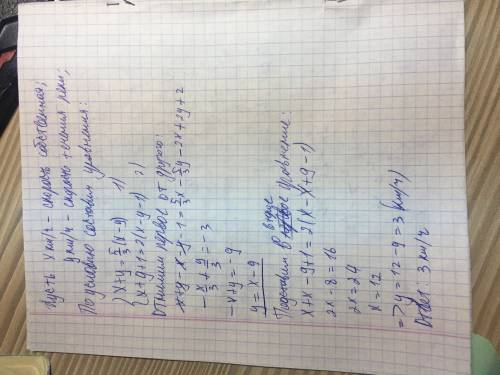 Пусть x км/ч – скорость собственная;
y км/ч – скорость течения реки;
По условию составим уравнения:
{ x+y = 5/3 (x-y) 1)
{ x+y+1 = 2(x-y-1) 2)
Отнимем первое от другого:
x+y-x-y-1 = 5/3x - 5/3y - 2x + 2y + 2
- x/3 + y/3 = -3
-x+y = -9
y = x-9
второе
Подставим в уравнение:
x+x-9+1 = 2(x-x+9-1)
2x-8 = 16
2x = 24
x = 12
=> y = 12-9 = 3 (км/ч)
Ответ 3 км/ч